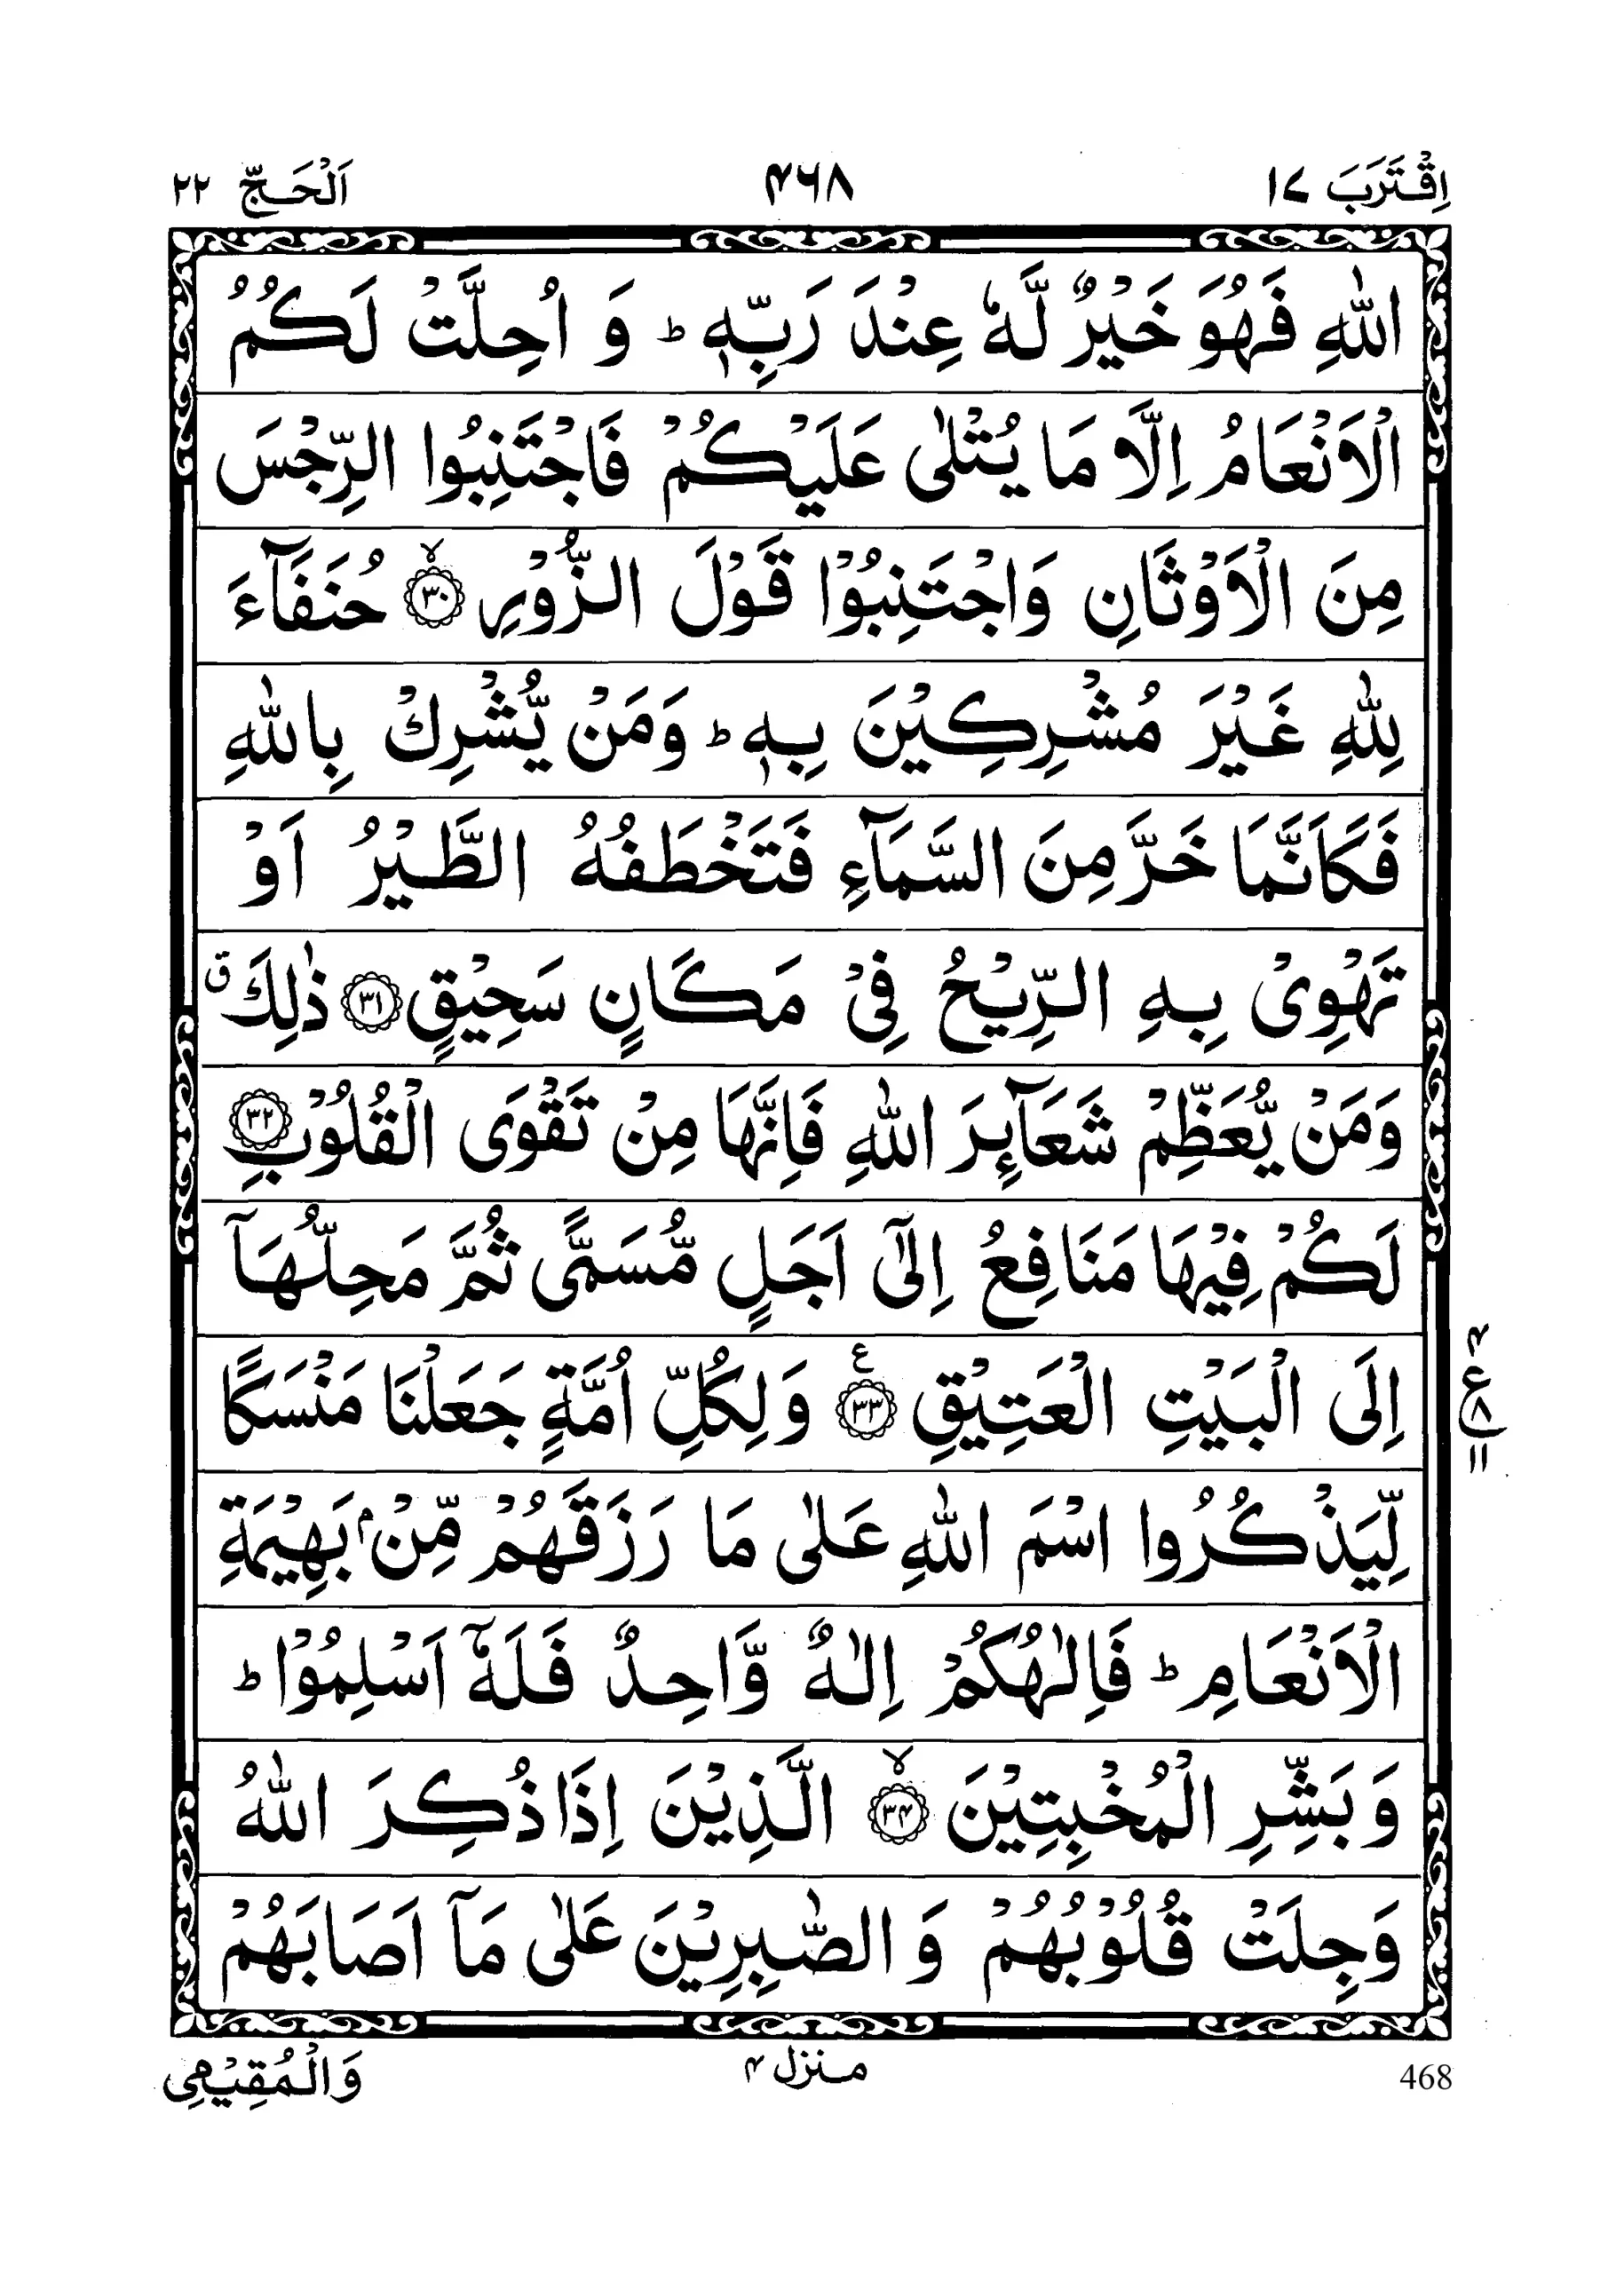 اِقْتَرَبَ ١٧ ۴۶۸ اَلْحَجّ ٢٢
اللّٰهِ فَهُوَ خَيْرٌ لَّهٗ عِنْدَ رَبِّهٖ ؕ وَ اُحِلَّتْ لَكُمُ
الْاَنْعَامُ اِلَّا مَا يُتْلٰى عَلَيْكُمْ فَاجْتَنِبُوا الرِّجْسَ
مِنَ الْاَوْثَانِ وَاجْتَنِبُوْا قَوْلَ الزُّوْرِ ۙ﴿٣٠﴾ حُنَفَآءَ
لِلّٰهِ غَيْرَ مُشْرِكِيْنَ بِهٖ ؕ وَمَنْ يُّشْرِكْ بِاللّٰهِ
فَكَاَنَّمَا خَرَّ مِنَ السَّمَآءِ فَتَخْطَفُهُ الطَّيْرُ اَوْ
تَهْوِىْ بِهِ الرِّيْحُ فِىْ مَكَانٍ سَحِيْقٍ ﴿٣١﴾ ذٰلِكَ ق
وَمَنْ يُّعَظِّمْ شَعَآئِرَ اللّٰهِ فَاِنَّهَا مِنْ تَقْوَى الْقُلُوْبِ ﴿٣٢﴾
لَكُمْ فِيْهَا مَنَافِعُ اِلٰٓى اَجَلٍ مُّسَمًّى ثُمَّ مَحِلُّهَآ
اِلَى الْبَيْتِ الْعَتِيْقِ ﴿٣٣﴾ ع وَلِكُلِّ اُمَّةٍ جَعَلْنَا مَنْسَكًا
۴ ع ٨ ١١
لِّيَذْكُرُوا اسْمَ اللّٰهِ عَلٰى مَا رَزَقَهُمْ مِّنْۢ بَهِيْمَةِ
الْاَنْعَامِ ؕ فَاِلٰهُكُمْ اِلٰهٌ وَّاحِدٌ فَلَهٗۤ اَسْلِمُوْا ؕ
وَبَشِّرِ الْمُخْبِتِيْنَ ۙ﴿٣۴﴾ الَّذِيْنَ اِذَا ذُكِرَ اللّٰهُ
وَجِلَتْ قُلُوْبُهُمْ وَ الصّٰبِرِيْنَ عَلٰى مَاۤ اَصَابَهُمْ
468 منزل ۴ وَالْمُقِيْمِى